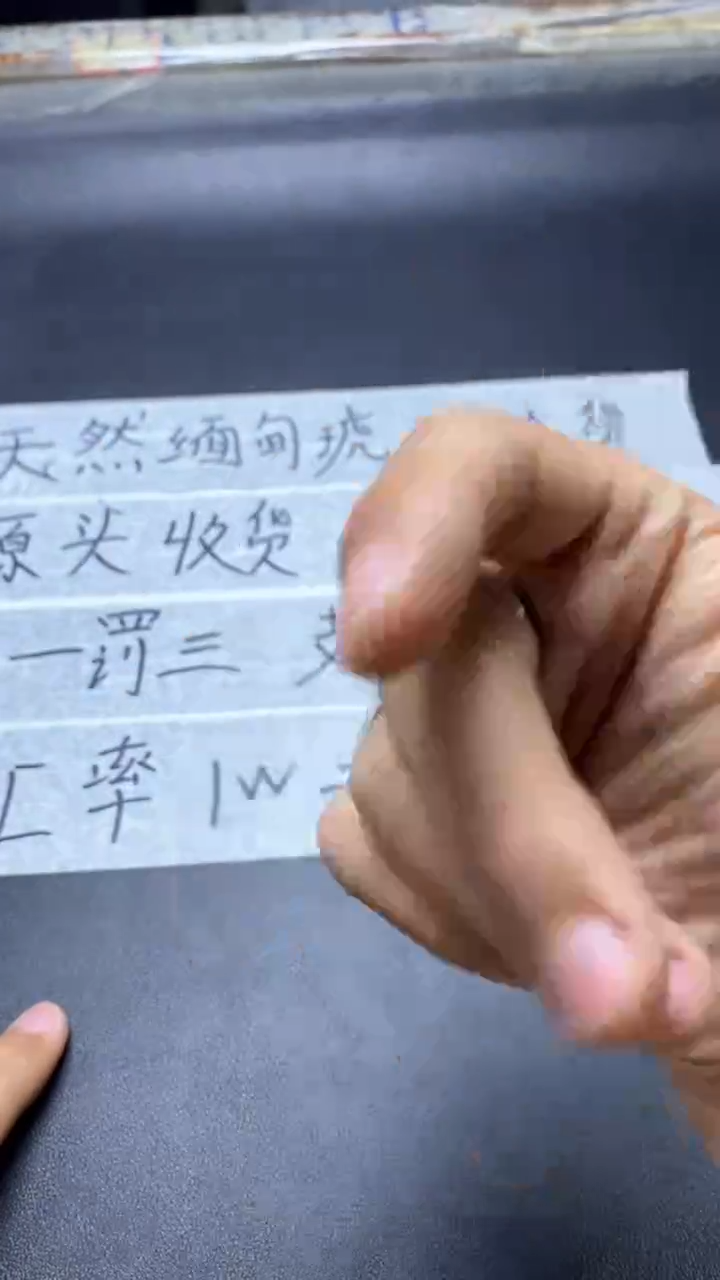 天然缅甸琥
源头收货
一罚三
汇率1W